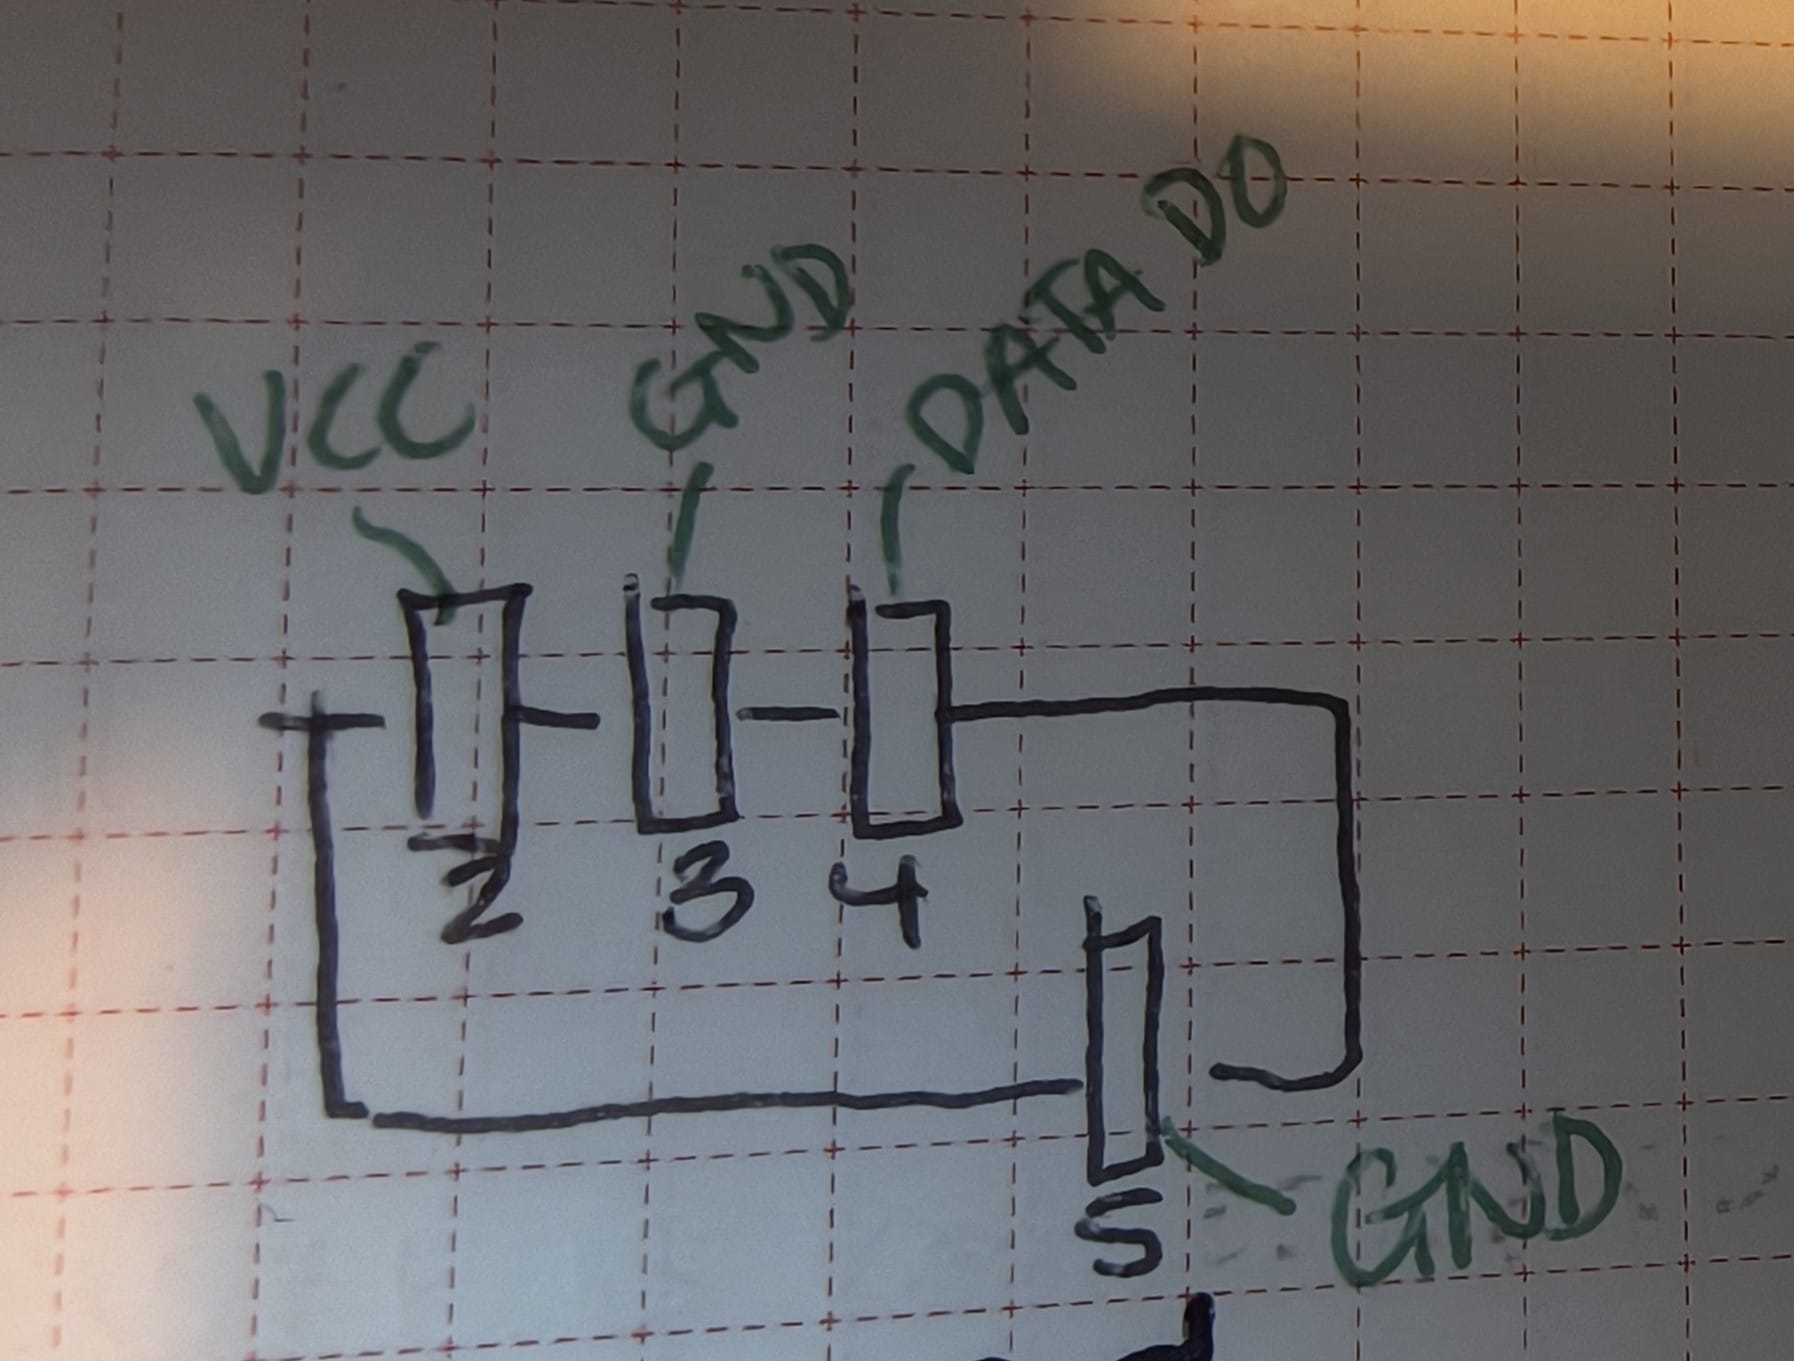 VCC GND DATA D0
2 3 4
5
GND